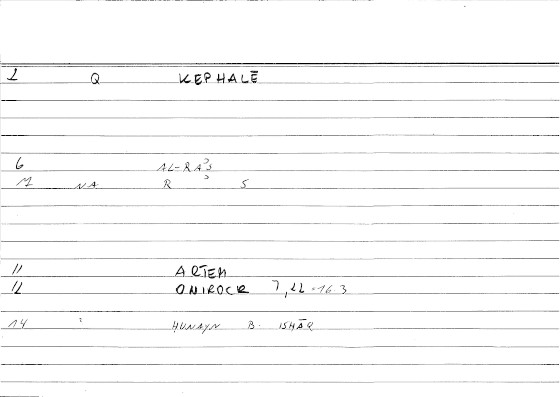 1 Q KEPHALĒ
6 AL-RAʾS
M NA R ʾ S
11 ARTEM
12 ONIROCR 7,22-16 3
14 HUNAYN B. ISHĀQ